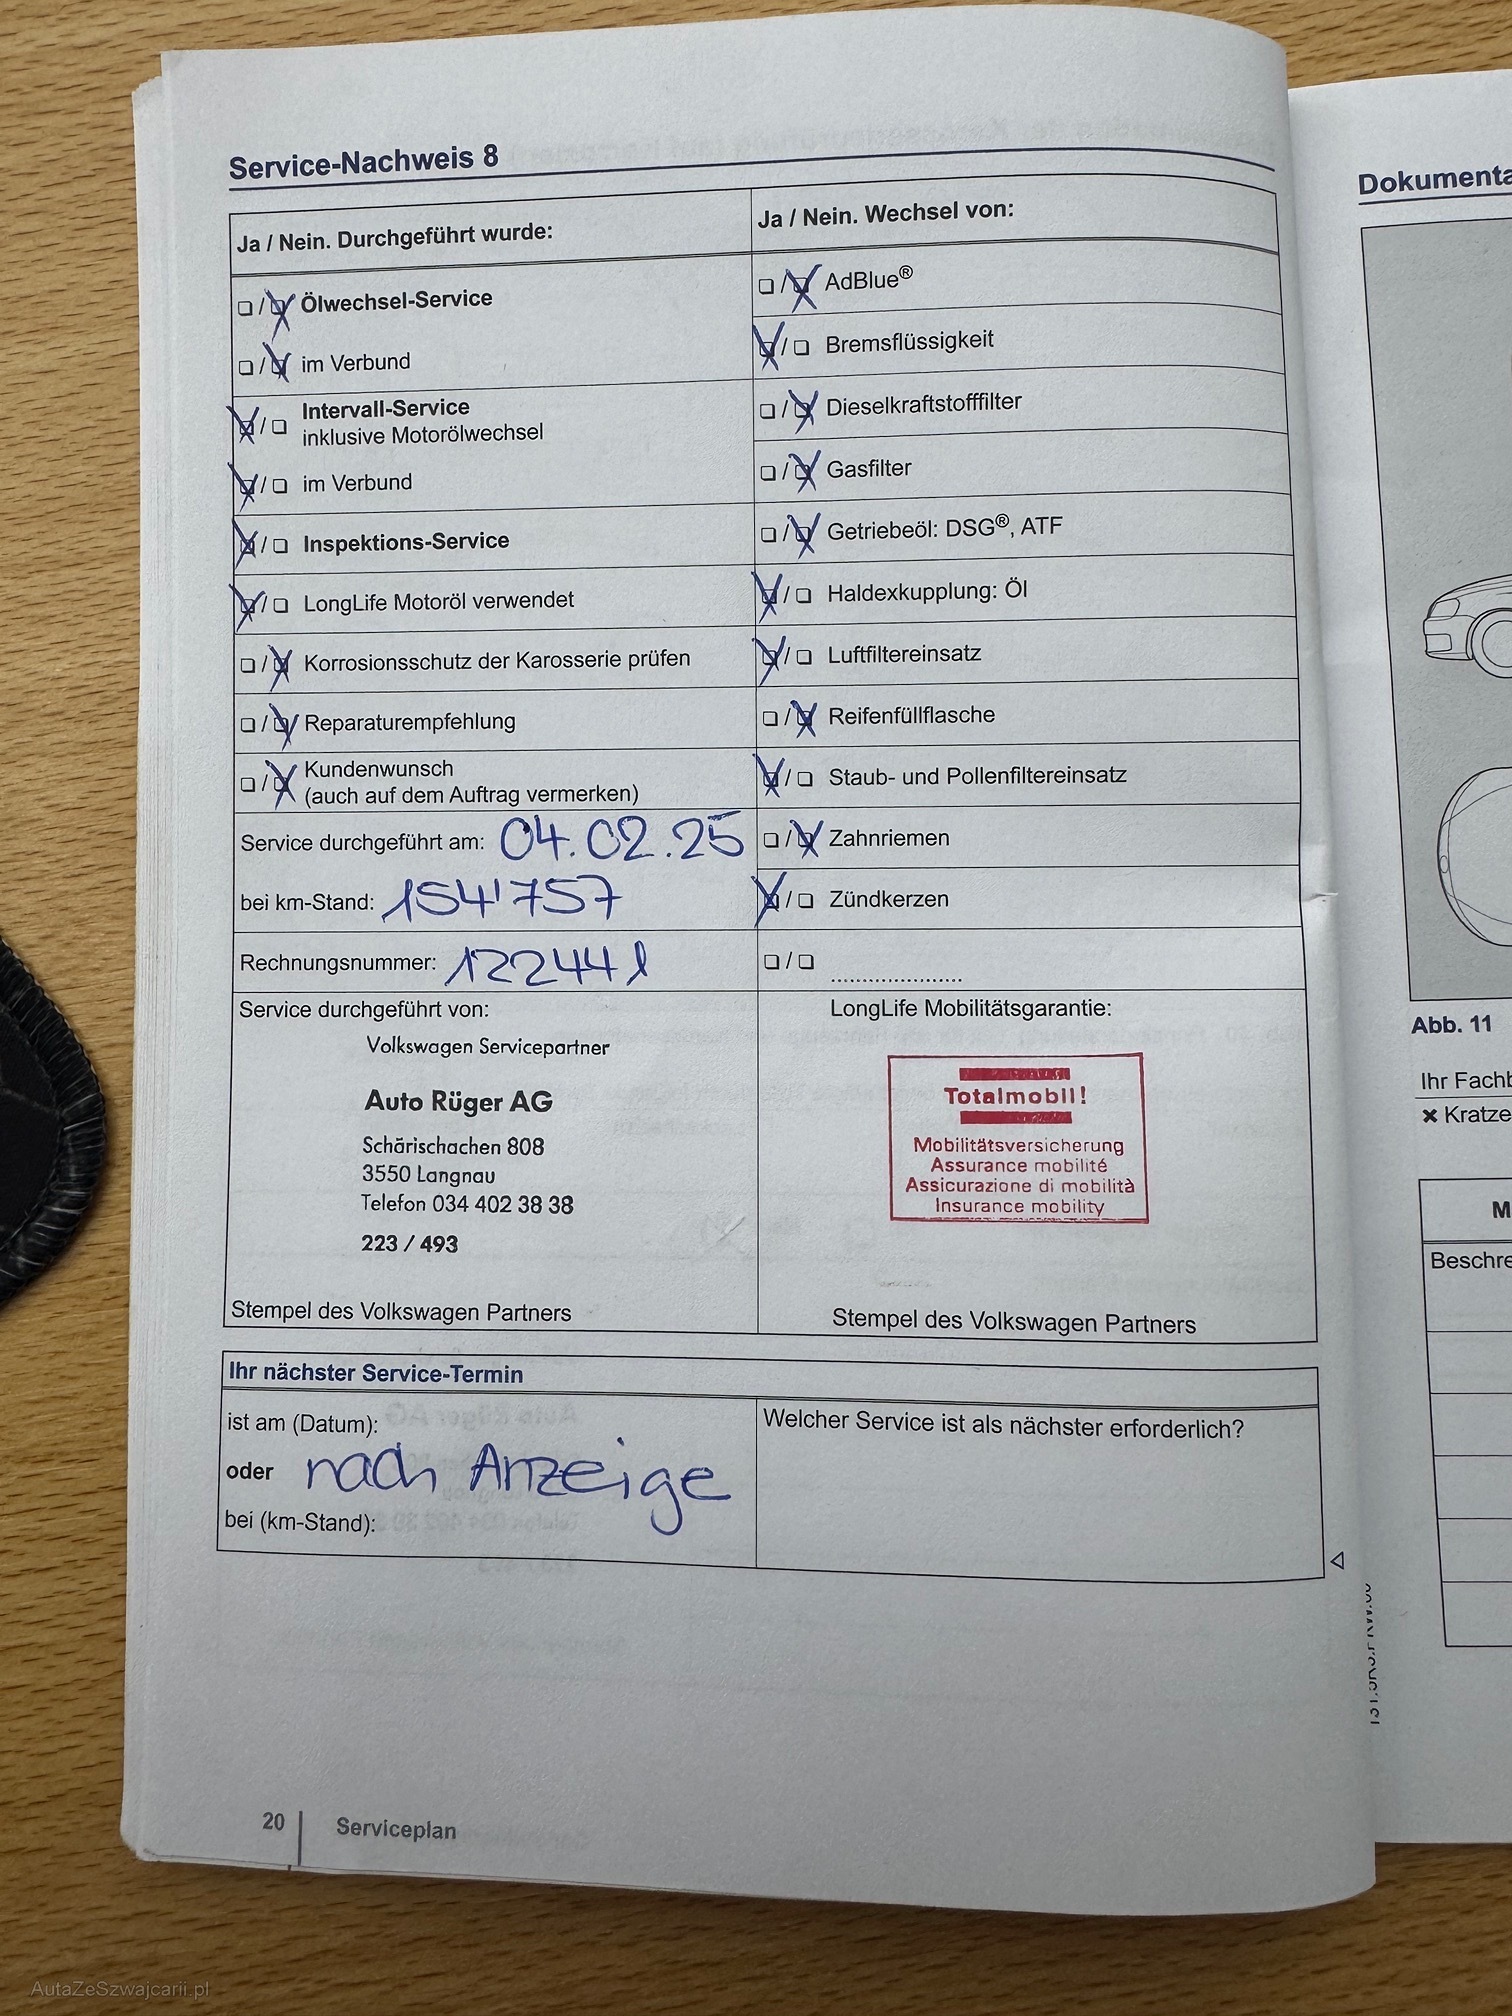 Service-Nachweis 8
Ja / Nein. Durchgeführt wurde:
❏ / ❏ Ölwechsel-Service
❏ / ❏ im Verbund
❏ / ❏ Intervall-Service
inklusive Motorölwechsel
❏ / ❏ im Verbund
❏ / ❏ Inspektions-Service
❏ / ❏ LongLife Motoröl verwendet
❏ / ❏ Korrosionsschutz der Karosserie prüfen
❏ / ❏ Reparaturempfehlung
❏ / ❏ Kundenwunsch
(auch auf dem Auftrag vermerken)
Service durchgeführt am: 04.02.25
bei km-Stand: 154'757
Rechnungsnummer: 122441
Ja / Nein. Wechsel von:
❏ / ❏ AdBlue®
❏ / ❏ Bremsflüssigkeit
❏ / ❏ Dieselkraftstofffilter
❏ / ❏ Gasfilter
❏ / ❏ Getriebeöl: DSG®, ATF
❏ / ❏ Haldexkupplung: Öl
❏ / ❏ Luftfiltereinsatz
❏ / ❏ Reifenfüllflasche
❏ / ❏ Staub- und Pollenfiltereinsatz
❏ / ❏ Zahnriemen
❏ / ❏ Zündkerzen
❏ / ❏ ....................
Service durchgeführt von:
Volkswagen Servicepartner
Auto Rüger AG
Schärischachen 808
3550 Langnau
Telefon 034 402 38 38
223 / 493
Stempel des Volkswagen Partners
LongLife Mobilitätsgarantie:
Totalmobil!
Mobilitätsversicherung
Assurance mobilité
Assicurazione di mobilità
Insurance mobility
Stempel des Volkswagen Partners
Ihr nächster Service-Termin
ist am (Datum):
oder nach Anzeige
bei (km-Stand):
Welcher Service ist als nächster erforderlich?
20 Serviceplan
Dokumenta
Abb. 11
Ihr Fachb
✖ Kratze
M
Beschre
AutaZeSzwajcarii.pl